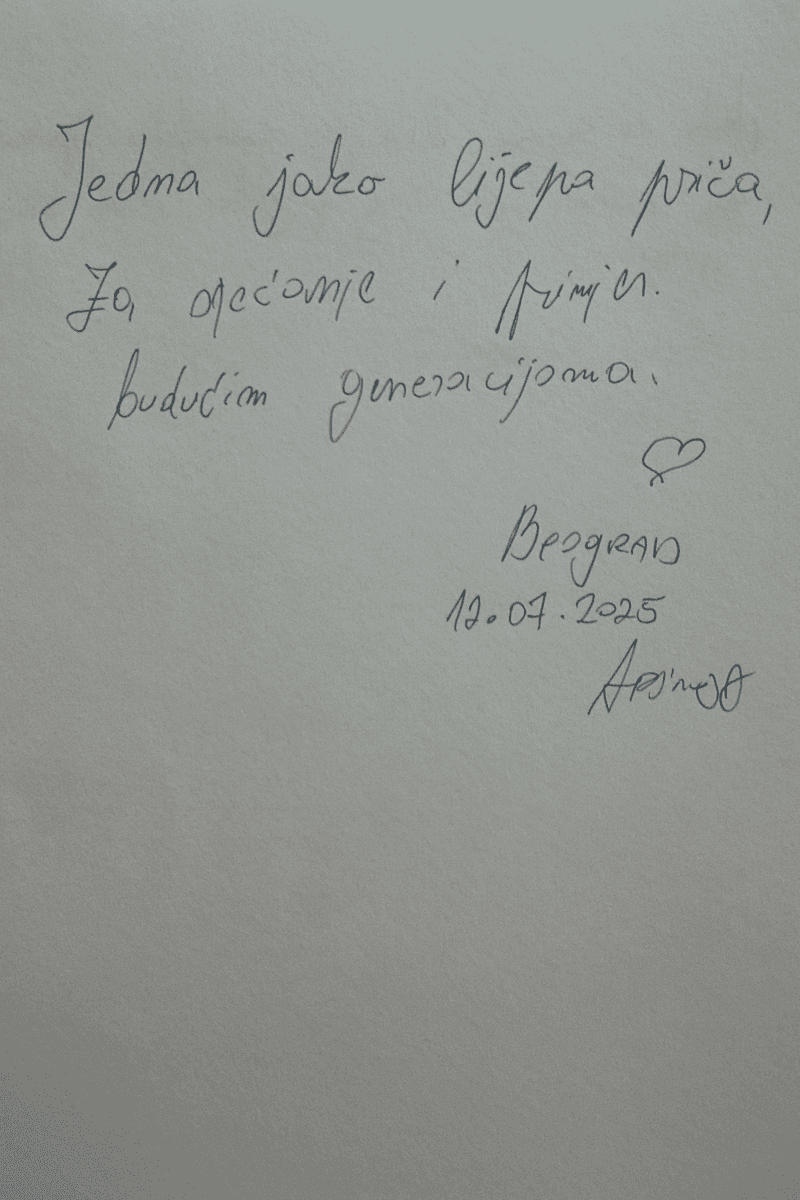 Jedna jako lijepa priča,
Za sjećanje i primjer.
budućim generacijama.
Beograd
12.07.2025